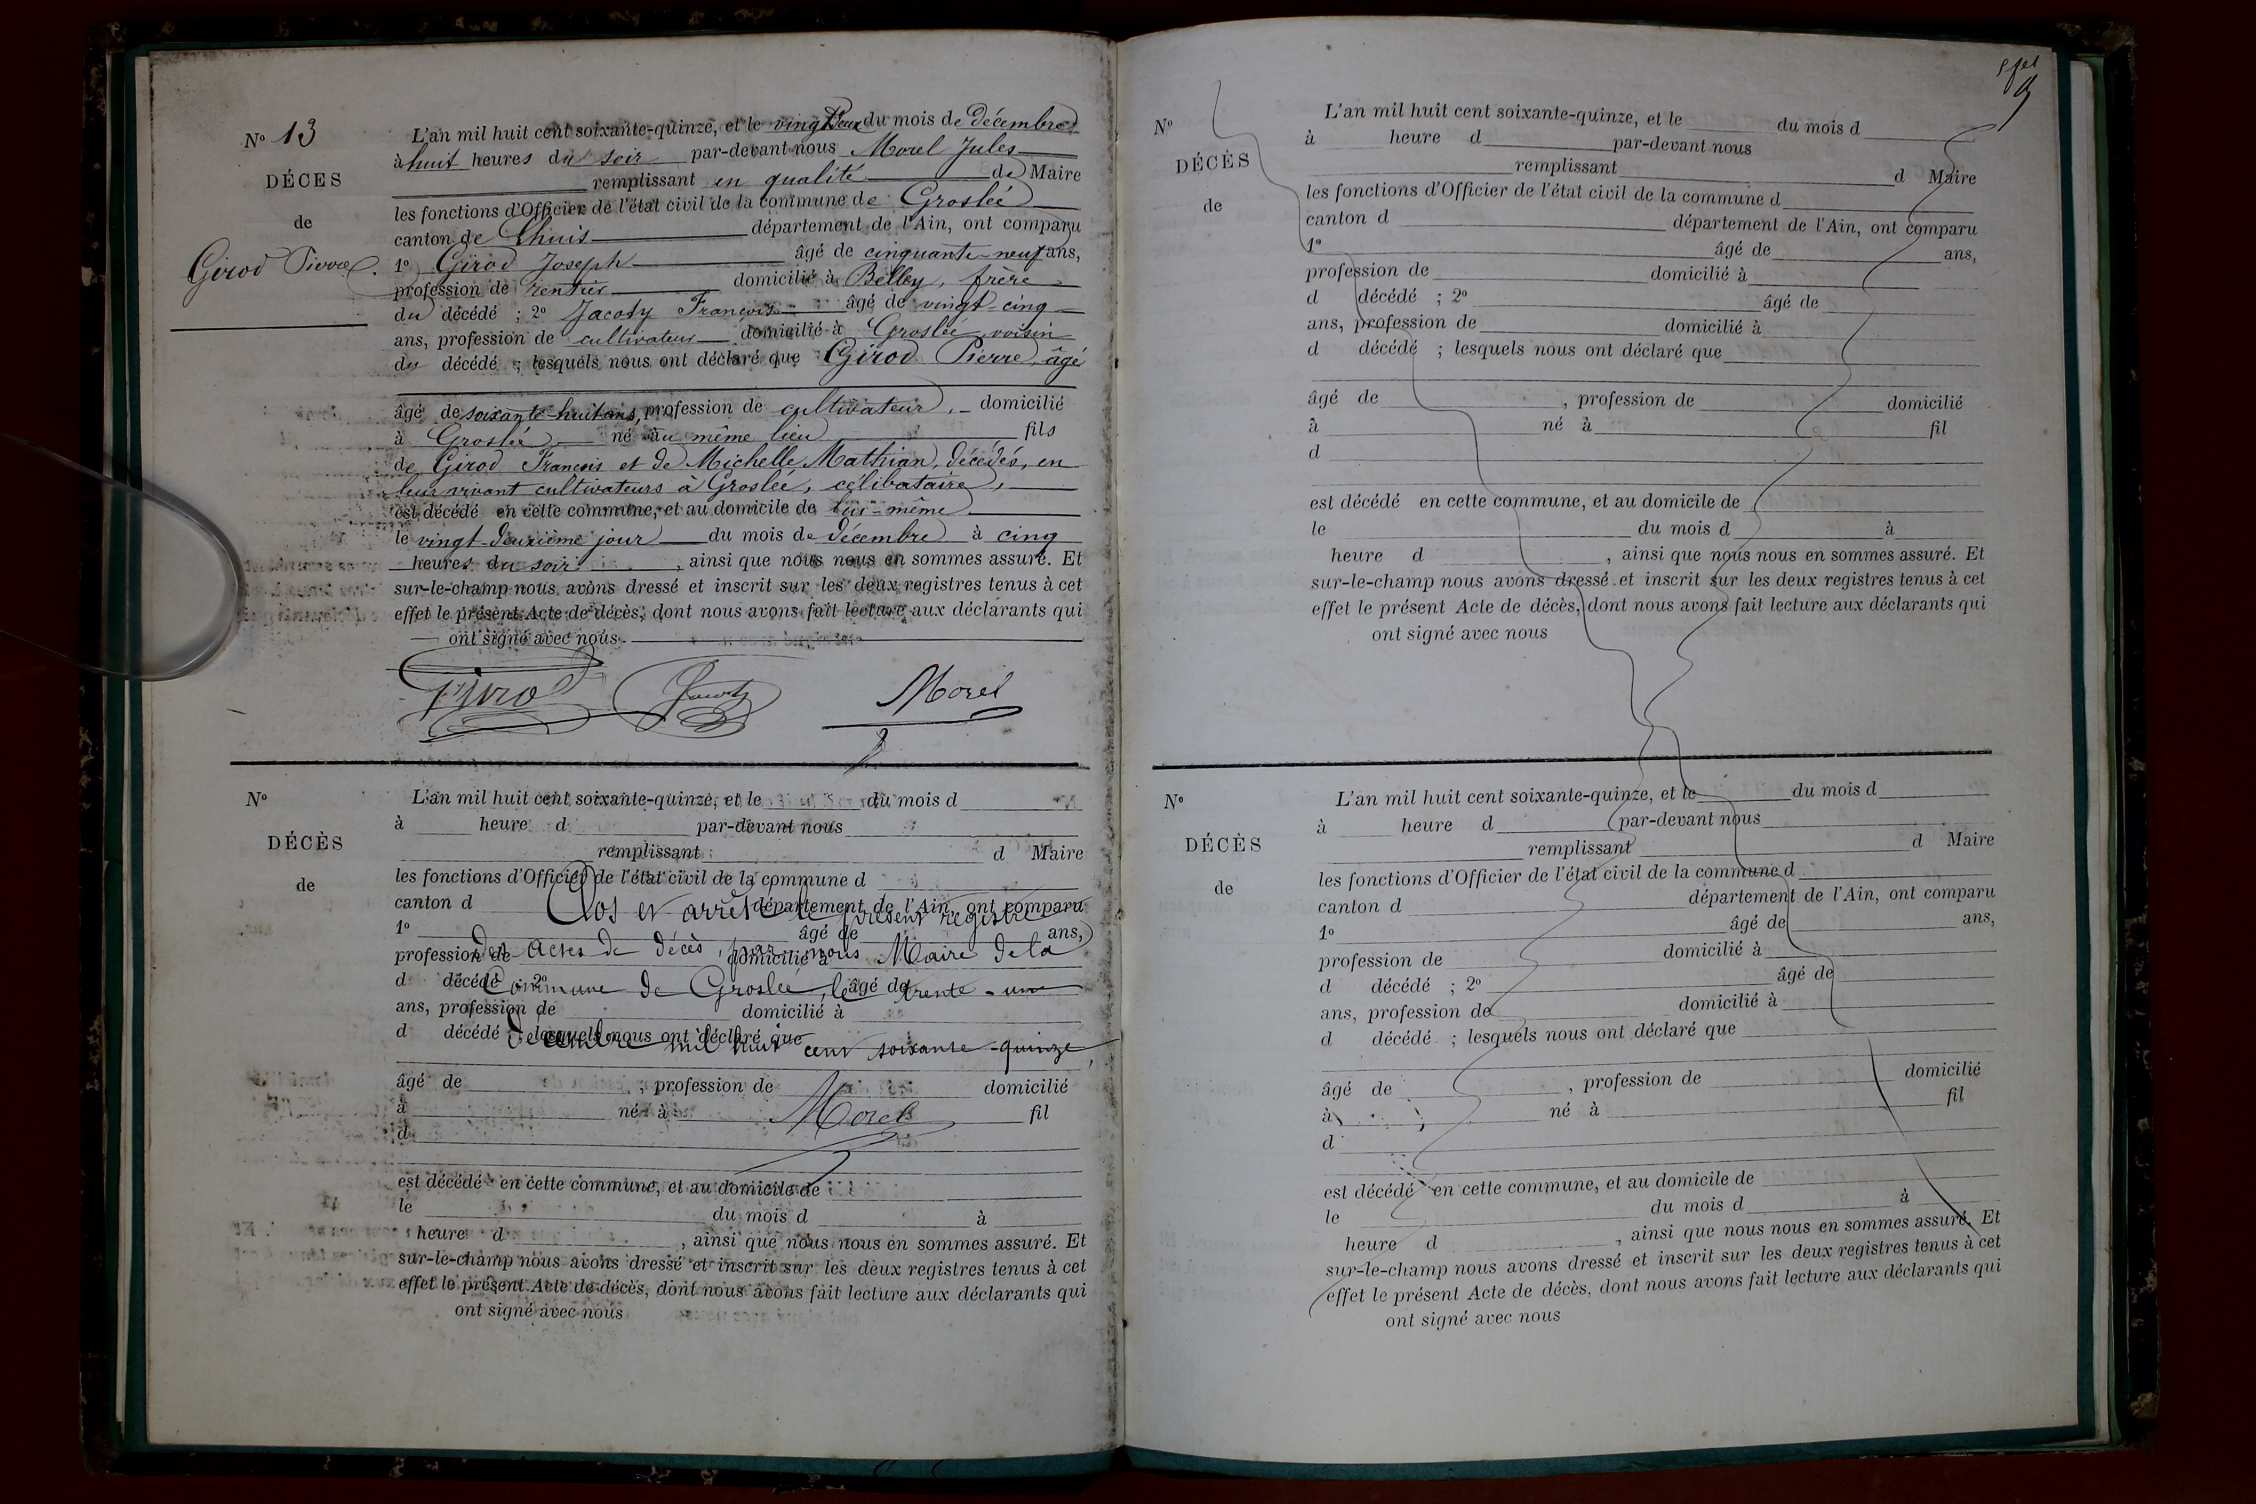 N° 13
DÉCES
de
Girod Pierre.
L'an mil huit cent soixante-quinze, et le vingt deux du mois de Décembre
à huit heures du soir par-devant nous Morel Jules
remplissant en qualité de Maire
les fonctions d'Officier de l'état civil de la commune de Groslée
canton de Lhuis département de l'Ain, ont comparu
1° Girod Joseph âgé de cinquante-neuf ans,
profession de rentier domicilié à Belley, frère
du décédé ; 2° Jacoty François âgé de vingt-cinq
ans, profession de cultivateur domicilié à Groslée, voisin
du décédé ; lesquels nous ont déclaré que Girod Pierre, âgé
âgé de soixante-huit ans, profession de cultivateur, domicilié
à Groslée né au même lieu fils
de Girod François et de Michelle Mathian, décédés, en
leur vivant cultivateurs à Groslée, célibataire,
est décédé en cette commune, et au domicile de lui-même
le vingt-deuxième jour du mois de décembre à cinq
heures du soir, ainsi que nous nous en sommes assuré. Et
sur-le-champ nous avons dressé et inscrit sur les deux registres tenus à cet
effet le présent Acte de décès, dont nous avons fait lecture aux déclarants qui
ont signé avec nous.
Girod Morel
N°
DÉCÈS
de
L'an mil huit cent soixante-quinze, et le du mois d
à heure d par-devant nous
remplissant d Maire
les fonctions d'Officier de l'état civil de la commune d
canton d département de l'Ain, ont comparu
Clos et arrêté le présent registre
1° âgé de ans,
profession de domicilié à
des actes de décès, par nous Maire de la
d décédé ; 2° âgé de
Commune de Groslée, le trente-un
ans, profession de domicilié à
d décédé ; lesquels nous ont déclaré que
décembre mil huit cent soixante-quinze,
âgé de , profession de domicilié
à né à fil
Morel
d
est décédé en cette commune, et au domicile de
le du mois d à
heure d , ainsi que nous nous en sommes assuré. Et
sur-le-champ nous avons dressé et inscrit sur les deux registres tenus à cet
effet le présent Acte de décès, dont nous avons fait lecture aux déclarants qui
ont signé avec nous
9
N°
DÉCÈS
de
L'an mil huit cent soixante-quinze, et le du mois d
à heure d par-devant nous
remplissant d Maire
les fonctions d'Officier de l'état civil de la commune d
canton d département de l'Ain, ont comparu
1° âgé de ans,
profession de domicilié à
d décédé ; 2° âgé de
ans, profession de domicilié à
d décédé ; lesquels nous ont déclaré que
âgé de , profession de domicilié
à né à fil
d
est décédé en cette commune, et au domicile de
le du mois d à
heure d , ainsi que nous nous en sommes assuré. Et
sur-le-champ nous avons dressé et inscrit sur les deux registres tenus à cet
effet le présent Acte de décès, dont nous avons fait lecture aux déclarants qui
ont signé avec nous
N°
DÉCÈS
de
L'an mil huit cent soixante-quinze, et le du mois d
à heure d par-devant nous
remplissant d Maire
les fonctions d'Officier de l'état civil de la commune d
canton d département de l'Ain, ont comparu
1° âgé de ans,
profession de domicilié à
d décédé ; 2° âgé de
ans, profession de domicilié à
d décédé ; lesquels nous ont déclaré que
âgé de , profession de domicilié
à né à fil
d
est décédé en cette commune, et au domicile de
le du mois d à
heure d , ainsi que nous nous en sommes assuré. Et
sur-le-champ nous avons dressé et inscrit sur les deux registres tenus à cet
effet le présent Acte de décès, dont nous avons fait lecture aux déclarants qui
ont signé avec nous